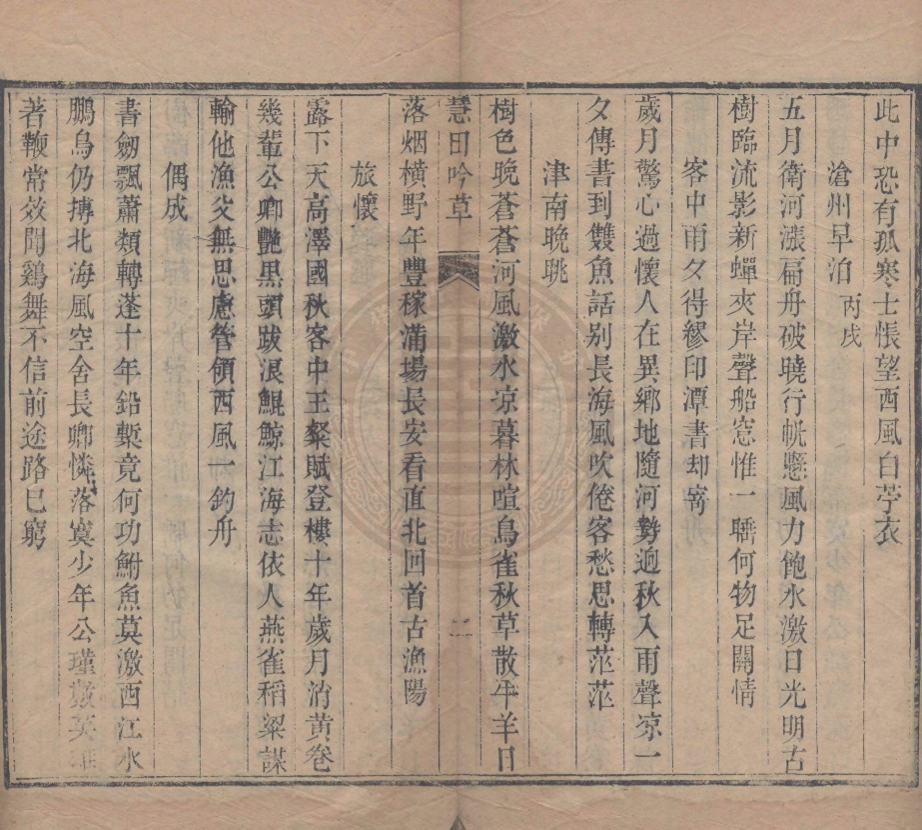 此中恐有孤寒士悵望西風白苧衣
滄州早泊 丙戌
五月衛河漲扁舟破曉行帆懸風力飽水激日光明古
樹臨流影新蟬夾岸聲船窓惟一聽何物足關情
客中雨夕得繆印潭書却寄
歲月驚心過懷人在異鄉地隨河勢迥秋入雨聲凉一
夕傳書到雙魚話别長海風吹倦客愁思轉茫茫
津南晚眺
樹色晚蒼蒼河風激水凉暮林喧鳥雀秋草散牛羊日
慧田吟草
二
落烟橫野年豐稼滿場長安看直北回首古漁陽
旅懷
露下天高澤國秋客中王粲賦登樓十年歲月消黃卷
幾輩公卿艷黑頭跋浪鯤鯨江海志依人燕雀稻粱謀
輸他漁父無思慮管領西風一釣舟
偶成
書劒飄蕭類轉蓬十年鉛槧竟何功鮒魚莫激西江水
鵬鳥仍摶北海風空舍長卿憐落寞少年公瑾英雄
著鞭常效聞鷄舞不信前途路已窮